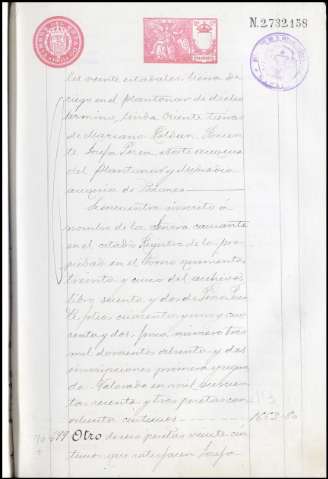 N.2732158
los veinte estadales tierra de
riego en el plantonar de dicho
termino, linda Oriente tierras
de Mariano Roldan, Poniente
Josefa Perez, Norte acequia
del Plantonar y Mediodia
acequia de
Se encuentra inscrito á
nombre de la Señora causante
en el citado Registro de la pro-
piedad en el tomo quinientos
treinta y cinco del archivo,
libro sesenta y dos de
folio cuarenta y uno y cua-
renta y dos, finca número tres
mil doscientos ochenta y dos
inscripciones primera y segun-
da. Valorado en mil seiscien-
tas sesenta y tres pesetas con
ochenta centimos 1663.80
Otro de seis pesetas veinte cen-
timos que satisfacen Josefa